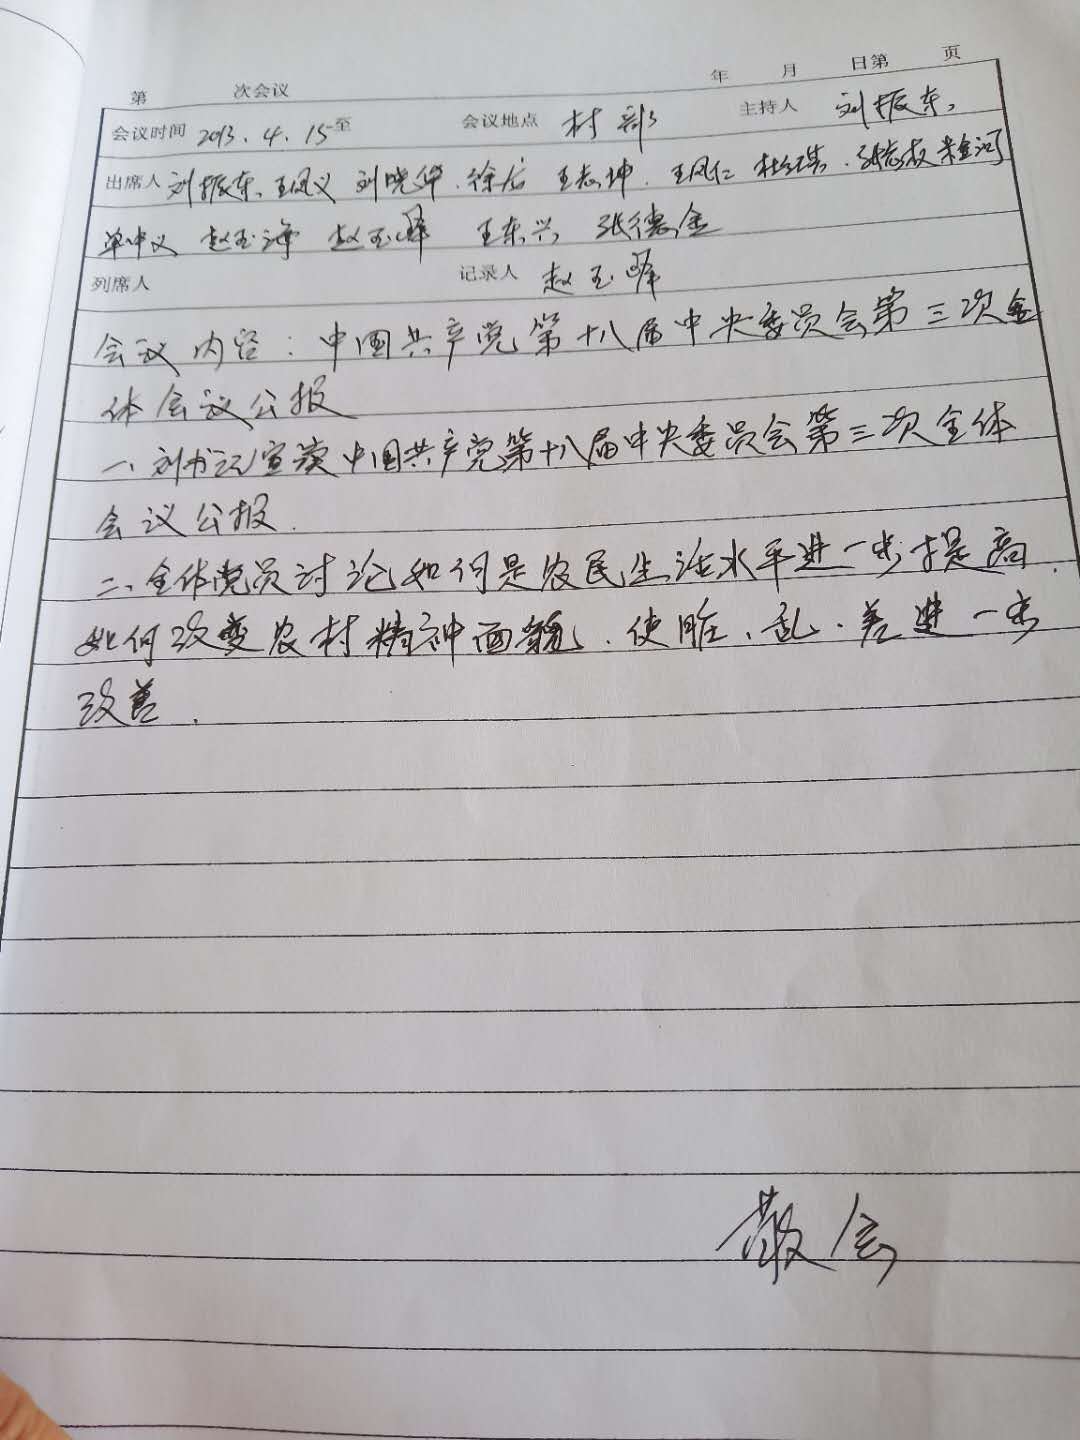 第 次会议 年 月 日第 页
会议时间 2013.4.15 至 会议地点 村部 主持人 刘振东、
出席人 刘振东、王凤义 刘晓华、徐 王志坤、王凤仁 张志权
单中义 赵玉海 赵玉峰 王东兴 张德金
列席人 记录人 赵玉峰
会议内容：中国共产党第十八届中央委员会第三次全
体会议公报
一、刘书记宣读中国共产党第十八届中央委员会第三次全体
会议公报.
二、全体党员讨论如何是农民生活水平进一步提高.
如何改变农村精神面貌、使脏、乱、差进一步
改善.
散会